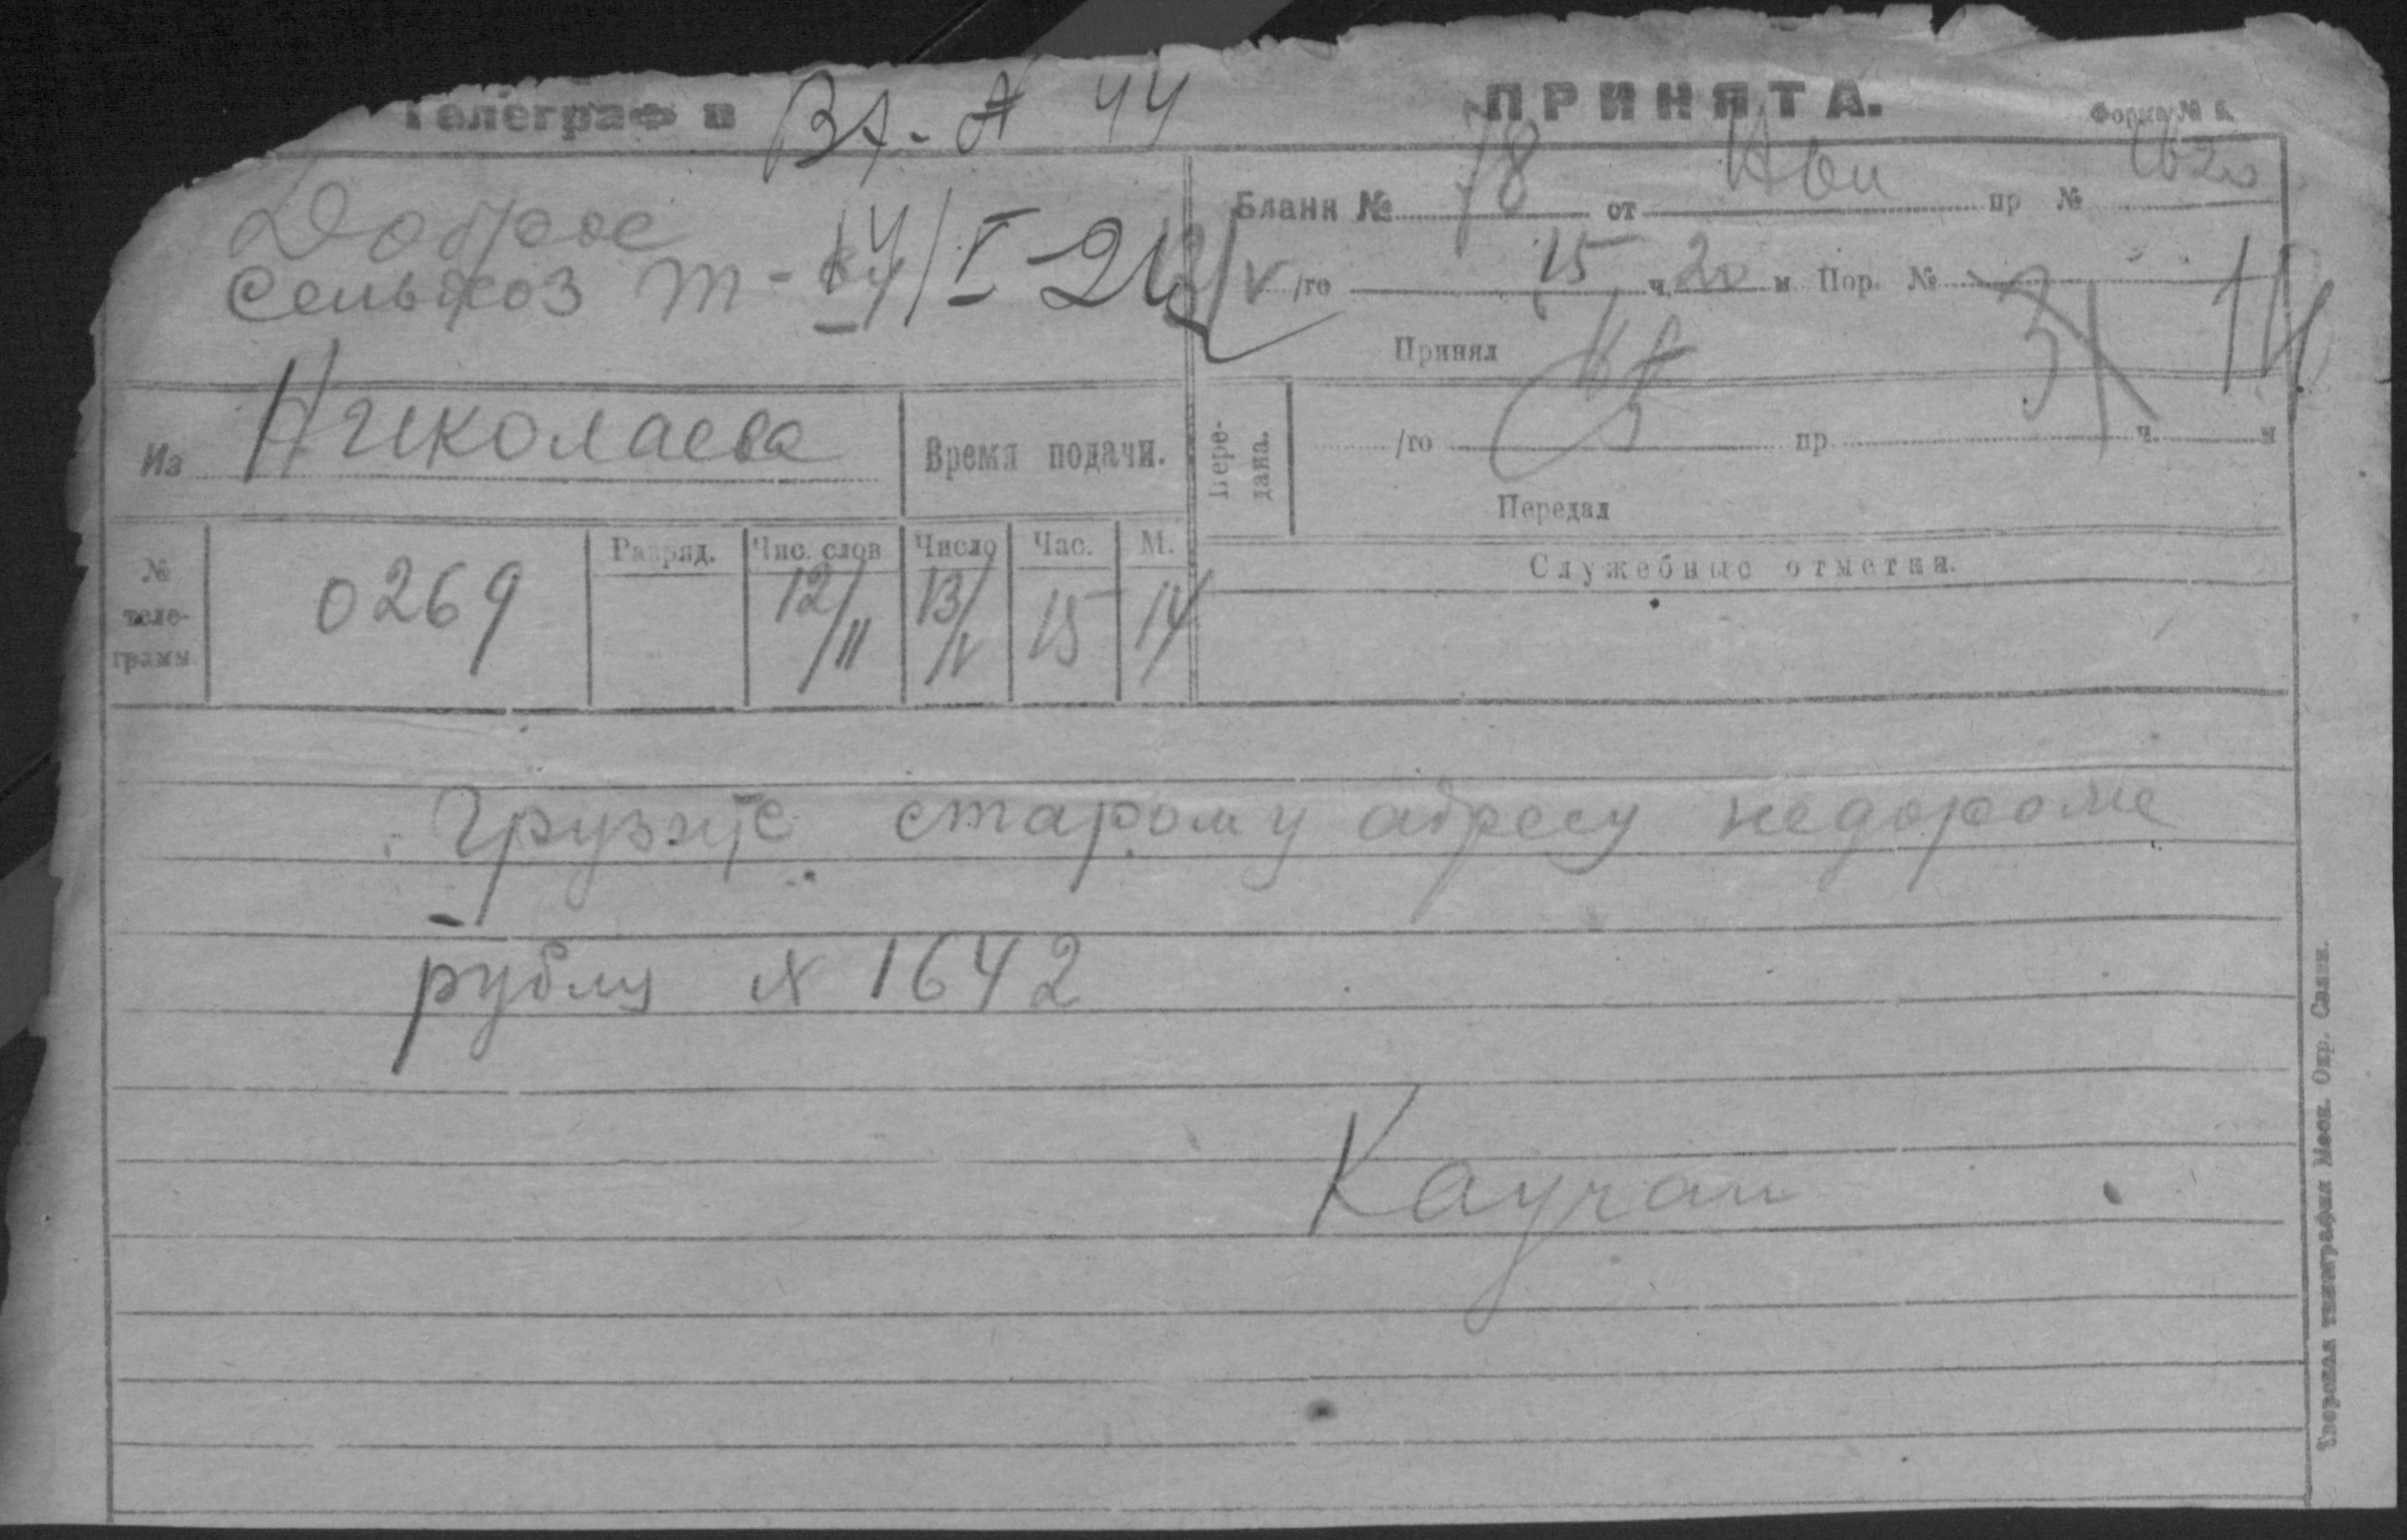 Телеграф в Вх. № 44
ПРИНЯТА.
Форма №
Доброе
Сельхоз т-ву
14/V-24
Бланк № 78 от Нви пр №
13/V /го 15 ч. 20 м Пор. №
Принял
Из Николаева
Время подачи.
Пере-
дана.
/го пр ч. м
Передал
№
теле-
граммы
0269
Разряд.
Чис. слов
12/11
Число
13/V
Час.
15
М.
14
Служебные отметки.
Грузите старому адресу недороже
рубля № 1642
Каучан
Тверская типография Моск. Окр. Связи.